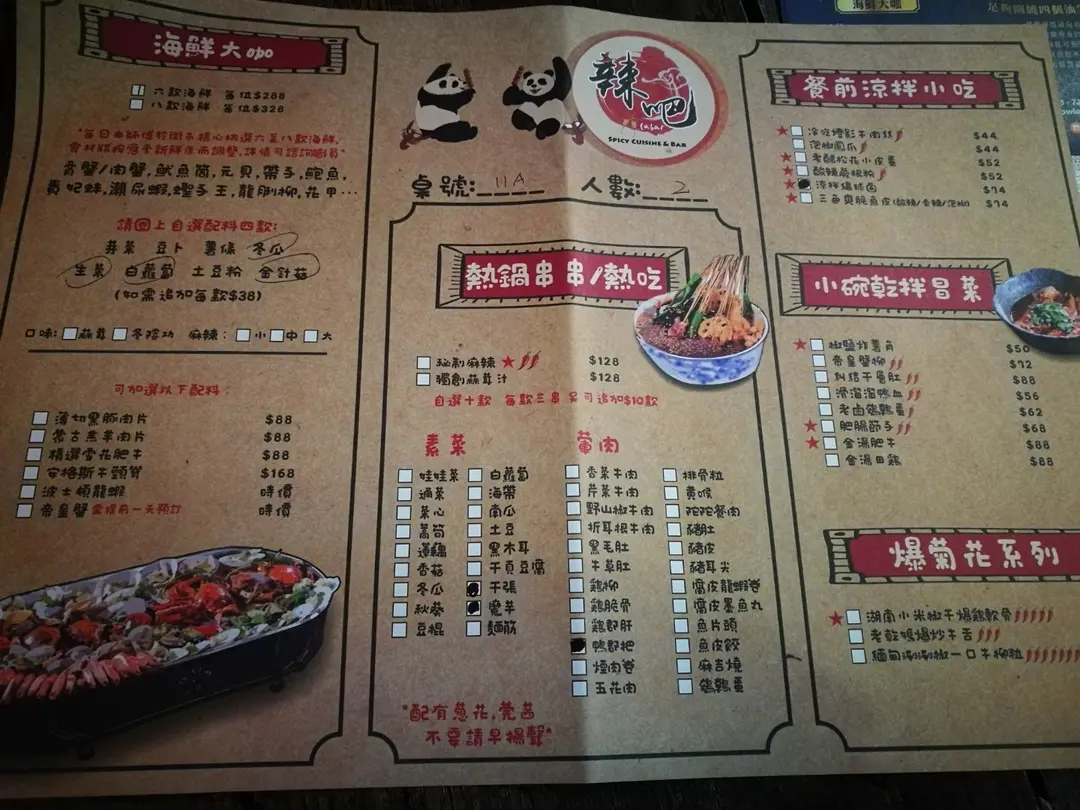 海鮮大咖
六款海鮮 每位$288
八款海鮮 每位$328
*每日由師傅於街市精心挑選六至八款海鮮,
食材將按應季新鮮度而調整,詳情可諮詢職員*
膏蟹/肉蟹,魷魚筒,元貝,帶子,鮑魚,
貴妃蚌,瀨尿蝦,蟶子王,龍脷柳,花甲…
請圈上自選配料四款:
韭菜 豆卜 薯條 冬瓜
生菜 白蘿蔔 土豆粉 金針菇
(如需追加每款$38)
口味: 蒜茸 冬陰功 麻辣: 小 中 大
可加選以下配料:
薄切黑豚肉片 $88
蒙古羔羊肉片 $88
精選雪花肥牛 $88
安格斯牛頸脊 $168
波士頓龍蝦 時價
帝皇蟹 需提前一天預訂 時價
辣吧
SPICY CUISINE & BAR
桌號: 11A 人數: 2
熱鍋串串/熱吃
秘制麻辣 $128
獨創蒜茸汁 $128
自選十款 每款三串 另可追加$10款
素菜
娃娃菜 白蘿蔔
通菜 海帶
菜心 南瓜
萵筍 土豆
蓮藕 黑木耳
香菇 千頁豆腐
冬瓜 千張
秋葵 魔芋
豆棍 麵筋
葷肉
香菜牛肉 排骨粒
芹菜牛肉 黃喉
野山椒牛肉 陀陀餐肉
折耳根牛肉 豬肚
黑毛肚 豬皮
牛草肚 豬耳尖
鷄柳 腐皮龍蝦卷
鷄脆骨 腐皮墨魚丸
鷄郡肝 魚片頭
鴨郡把 魚皮餃
煙肉卷 麻吉燒
五花肉 鵪鶉蛋
*配有蔥花,芫茜
不要請早揚聲*
餐前涼拌小吃
冷吃燈影牛肉絲 $44
泡椒鳳爪 $44
老醋松花小皮蛋 $52
酸辣蕨根粉 $52
涼拌繡球菌 $74
三色爽脆魚皮(酸辣/香辣/泡椒) $74
小碗乾拌冒菜
椒鹽炸薯角 $50
帝皇蟹柳 $72
糾結千層肚 $88
滑溜溜鴨血 $56
老卤鵪鶉蛋 $62
肥腸節子 $68
金湯肥牛 $88
金湯田鷄 $88
爆菊花系列
湖南小米椒干爆鷄軟骨
老乾媽爆炒牛舌
緬甸涮涮椒一口牛柳粒
海鮮大咖